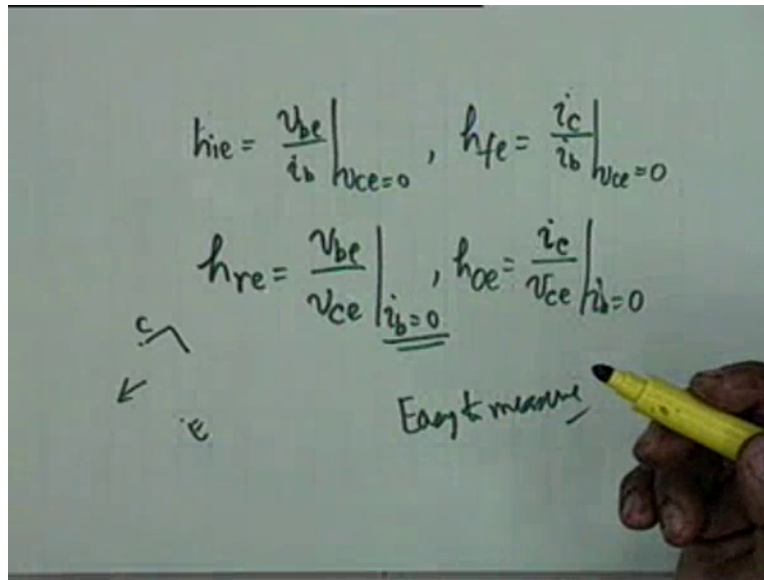 hie = vbe/ib |vce=0 , hfe = ic/ib |vce=0
hre = vbe/vce |ib=0 , hoe = ic/vce |ib=0
C
E
Easy to measure